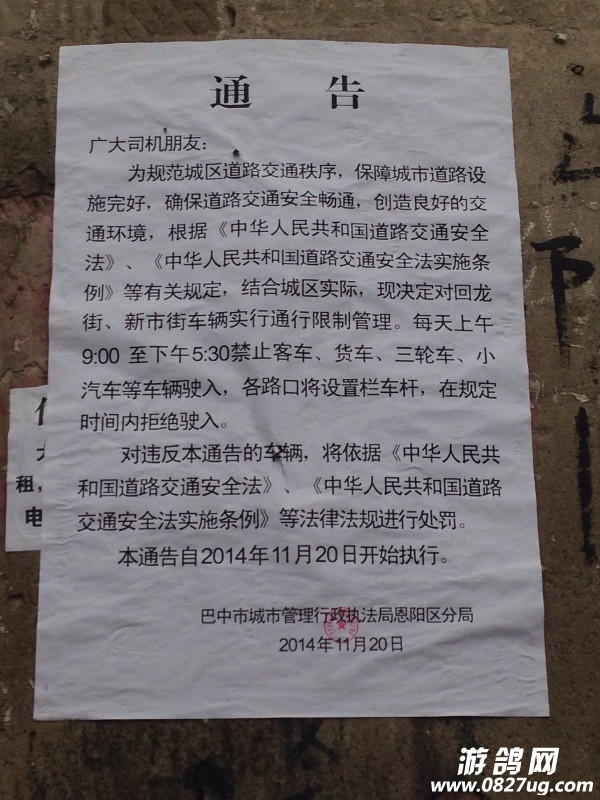 通 告
广大司机朋友：
为规范城区道路交通秩序，保障城市道路设
施完好，确保道路交通安全畅通，创造良好的交
通环境，根据《中华人民共和国道路交通安全
法》、《中华人民共和国道路交通安全法实施条
例》等有关规定，结合城区实际，现决定对回龙
街、新市街车辆实行通行限制管理。每天上午
9:00 至下午5:30禁止客车、货车、三轮车、小
汽车等车辆驶入，各路口将设置栏车杆，在规定
时间内拒绝驶入。
对违反本通告的车辆，将依据《中华人民共
和国道路交通安全法》、《中华人民共和国道路
交通安全法实施条例》等法律法规进行处罚。
本通告自2014年11月20日开始执行。
巴中市城市管理行政执法局恩阳区分局
2014年11月20日
租，
电
游鸽网
www.0827ug.com